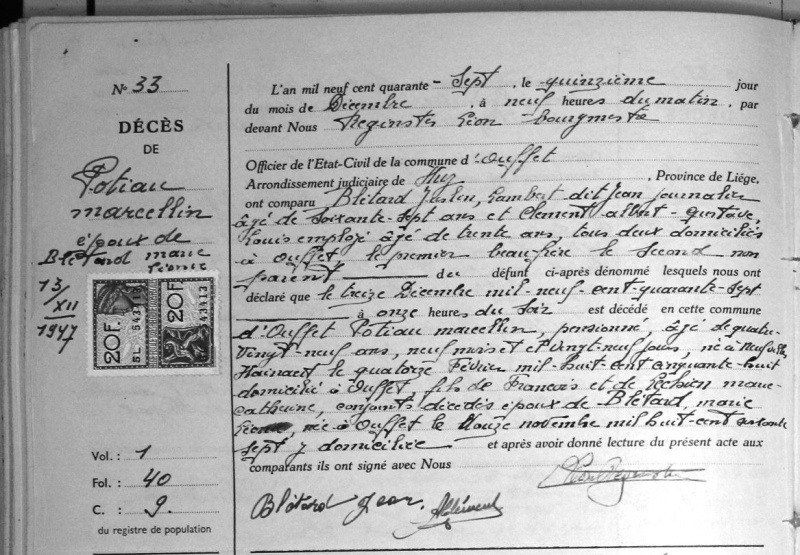 N° 33
DÉCÈS
DE
Potiau
marcellin
époux de
Blétard marie
Léonie
13/
XII
1947
20F.
5L 543413
20F.
543413
Vol. : 1
Fol. : 40
C. : 9.
du registre de population
L'an mil neuf cent quarante - Sept, le quinzième jour
du mois de Décembre, à neuf heures du matin, par
devant Nous Reginster Léon bourgmestre
Officier de l'Etat-Civil de la commune d'Ouffet
Arrondissement judiciaire de Huy, Province de Liége,
ont comparu Blétard Lambert dit Jean journalier
âgé de Soixante-Sept ans et Clément albert-gustave,
Louis employé âgé de trente ans, tous deux domiciliés
à Ouffet le premier beau-frère le Second non
parent du défunt ci-après dénommé lesquels nous ont
déclaré que le treize Décembre mil-neuf-cent-quarante-sept
à onze heures du Soir est décédé en cette commune
d'Ouffet Potiau marcellin, pensionné, âgé de quatre
Vingt-neuf ans, neuf mois et vingt-neuf jours, né à
Hainaut le quatorze Février mil-huit-cent cinquante-huit
domicilié à Ouffet fils de Francois et de marie-
Catherine, conjoints décédés époux de Blétard, marie
Léonie, née à Ouffet le Douze novembre mil huit cent soixante
sept y domiciliée et après avoir donné lecture du présent acte aux
comparants ils ont signé avec Nous
Blétard Jean. AClément